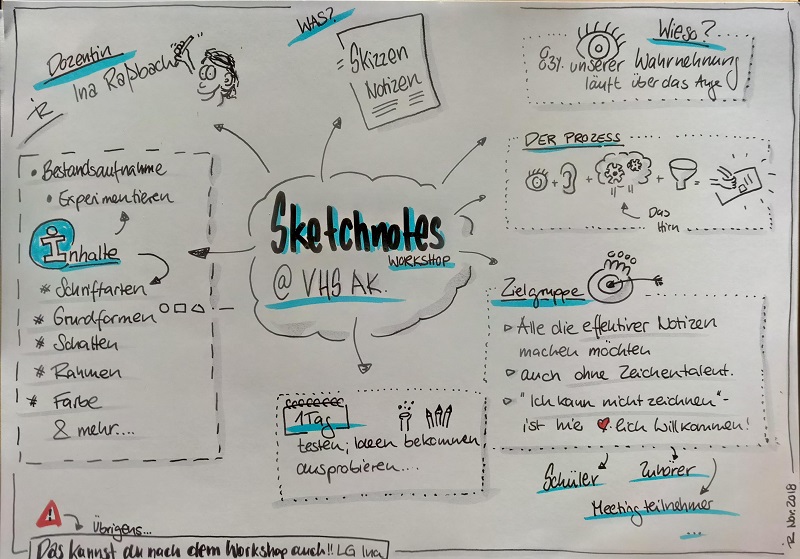 Dozentin
Ina Raßbach
iR
WAS?
Skizzen
Notizen
Wieso?
83% unserer Wahrnehmung
läuft über das Auge
DER PROZESS
+ + + =
Das
Hirn
• Bestandsaufnahme
• Experimentieren
Inhalte
* Schriftarten
* Grundformen
* Schatten
* Rahmen
* Farbe
& mehr....
Sketchnotes
WORKSHOP
@ VHS AK.
Zielgruppe
▹ Alle die effektiver Notizen
machen möchten
▹ auch ohne Zeichentalent.
▹ "Ich kann nicht zeichnen"-
ist hie ♥lich Willkommen!
Schüler
Zuhörer
Meetingteilnehmer
...
1 Tag
testen; Ideen bekommen
ausprobieren....
Übrigens...
Das kannst du nach dem Workshop auch!! LG Ina
iR Nov. 2018